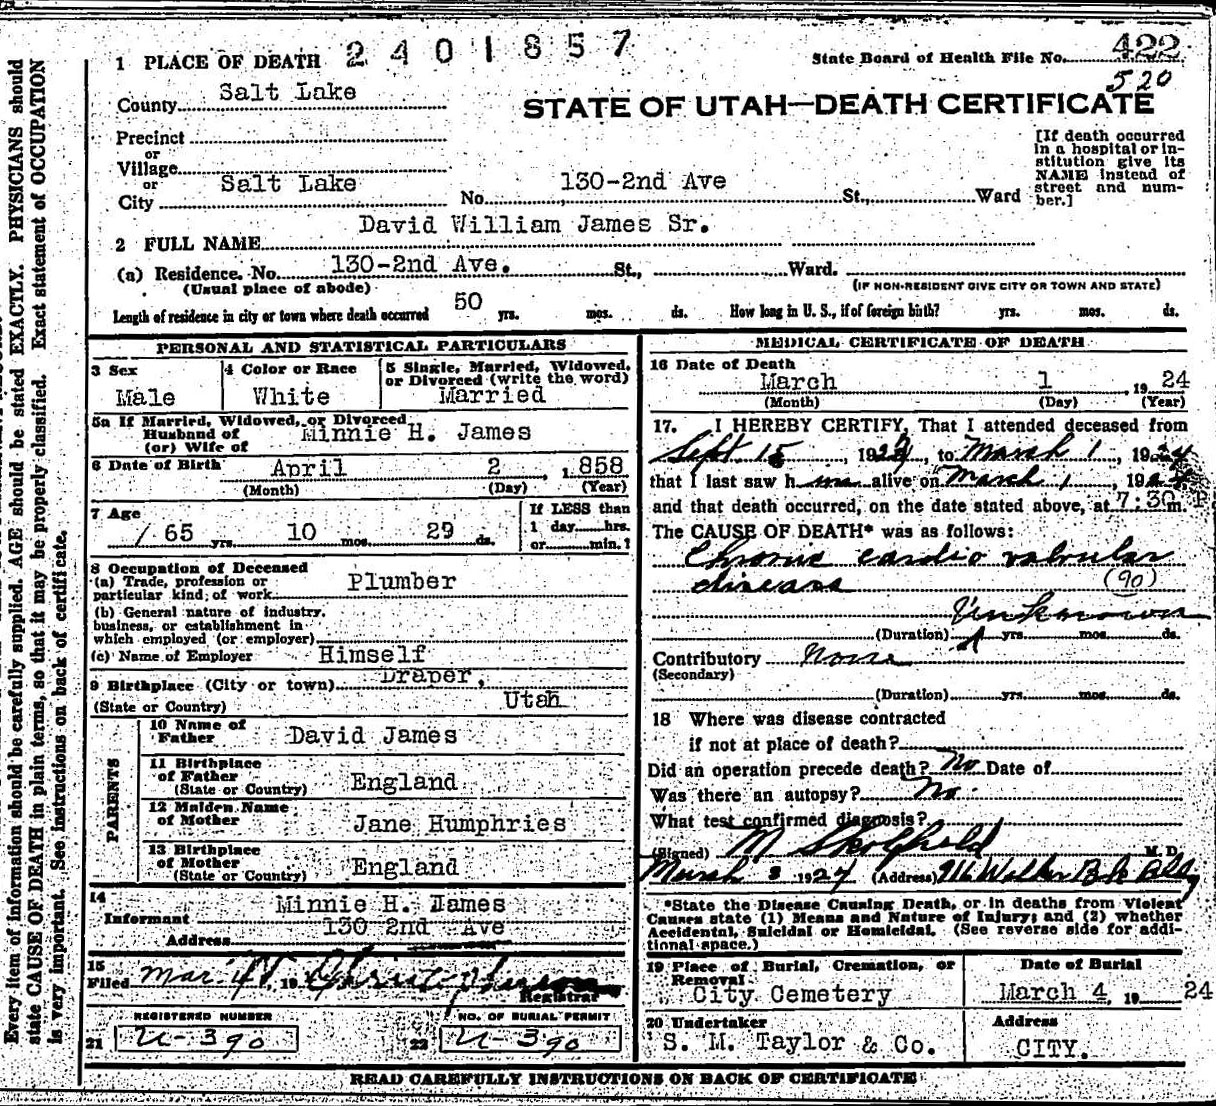 2401857
1 PLACE OF DEATH
State Board of Health File No. 422
520
County Salt Lake
STATE OF UTAH—DEATH CERTIFICATE
Precinct
or
Village
or
City Salt Lake No. 130-2nd Ave St., Ward
[If death occurred
in a hospital or in-
stitution give its
NAME instead of
street and num-
ber.]
2 FULL NAME David William James Sr.
(a) Residence. No. 130-2nd Ave. St., Ward.
(Usual place of abode) (IF NON-RESIDENT GIVE CITY OR TOWN AND STATE)
Length of residence in city or town where death occurred 50 yrs. mos. ds. How long in U. S., if of foreign birth? yrs. mos. ds.
PERSONAL AND STATISTICAL PARTICULARS
3 Sex
Male
4 Color or Race
White
5 Single, Married, Widowed,
or Divorced (write the word)
Married
5a If Married, Widowed, or Divorced
Husband of
(or) Wife of
Minnie H. James
6 Date of Birth April 2, 1858
(Month) (Day) (Year)
7 Age
65 yrs. 10 mos. 29 ds.
If LESS than
1 day hrs.
or min.?
8 Occupation of Deceased
(a) Trade, profession or
particular kind of work Plumber
(b) General nature of industry,
business, or establishment in
which employed (or employer)
(c) Name of Employer Himself
9 Birthplace (City or town) Draper,
(State or Country) Utah
PARENTS
10 Name of
Father David James
11 Birthplace
of Father
(State or Country) England
12 Maiden Name
of Mother Jane Humphries
13 Birthplace
of Mother
(State or Country) England
14
Informant Minnie H. James
Address 130 2nd Ave
15
Filed Mar 19
Registrar
REGISTERED NUMBER
21 U-390
NO. OF BURIAL PERMIT
22 U-390
MEDICAL CERTIFICATE OF DEATH
16 Date of Death
March 1, 1924
(Month) (Day) (Year)
17. I HEREBY CERTIFY, That I attended deceased from
Sept 15, 192 , to March 1, 1924
that I last saw h im alive on March 1, 1924
and that death occurred, on the date stated above, at 7:30 P m.
The CAUSE OF DEATH* was as follows:
Chronic cardio valvular
disease (90)
Unknown
(Duration) yrs. mos. ds.
Contributory None
(Secondary)
(Duration) yrs. mos. ds.
18 Where was disease contracted
if not at place of death?
Did an operation precede death? No Date of
Was there an autopsy? No.
What test confirmed diagnosis?
(Signed) M Skolfield M. D.
March 3 1924 (Address) 916 Walker Bk Bldg
*State the Disease Causing Death, or in deaths from Violent
Causes state (1) Means and Nature of Injury; and (2) whether
Accidental, Suicidal or Homicidal. (See reverse side for addi-
tional space.)
19 Place of Burial, Cremation, or
Removal
City Cemetery
Date of Burial
March 4, 1924
20 Undertaker
S. M. Taylor & Co.
Address
CITY.
READ CAREFULLY INSTRUCTIONS ON BACK OF CERTIFICATE
Every item of information should be carefully supplied. AGE should be stated EXACTLY. PHYSICIANS should
state CAUSE OF DEATH in plain terms, so that it may be properly classified. Exact statement of OCCUPATION
is very important. See instructions on back of certificate.